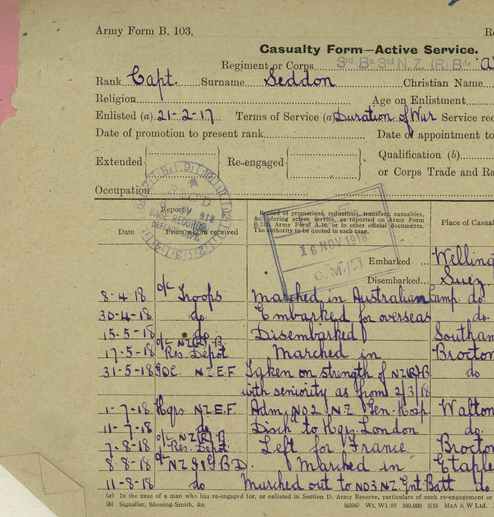 Army Form B. 103.
Casualty Form—Active Service.
Regiment or Corps 3rd Bn 3rd N.Z. (R) Bde
Rank Capt. Surname Seddon Christian Name
Religion Age on Enlistment
Enlisted (a) 21-2-17 Terms of Service (a) Duration of War Service rec
Date of promotion to present rank Date of appointment to
Extended Re-engaged Qualification (b)
or Corps Trade and Ra
Occupation
Report
Date From whom received
Record of promotions, reductions, transfers, casualties, &c., during active service, as reported on Army Form B. 213, Army Form A. 36, or in other official documents. The authority to be quoted in each case.
Place of Casual
16 NOV 1918
Embarked Welling
Disembarked Suez
8-4-18 o/c Troops Marched in Australian Camp. do.
30-4-18 do Embarked for overseas do.
15-5-18 do Disembarked Southam
17-5-18 o/c N.Z.(R).B Res. Depot Marched in Brocton
31-5-18 GOC. N.Z.E.F. Taken on strength of N.Z.(R).B do
with seniority as from 2/3/18
1-7-18 Hqrs N.Z.E.F. Adm. No 2 N.Z. Gen. Hosp Walton
11-7-18 do Disch to Hqrs. London do.
7-8-18 o/c N.Z.(R).B Res. Depot Left for France Brocto
8-8-18 N.Z. B.D. Marched in Etaple
11-8-18 do Marched out to No 3 N.Z. Ent Batt do
(a) In the case of a man who has re-engaged for, or enlisted in Section D. Army Reserve, particulars of such re-engagement or
(b) Signaller, Shoeing-Smith, &c.